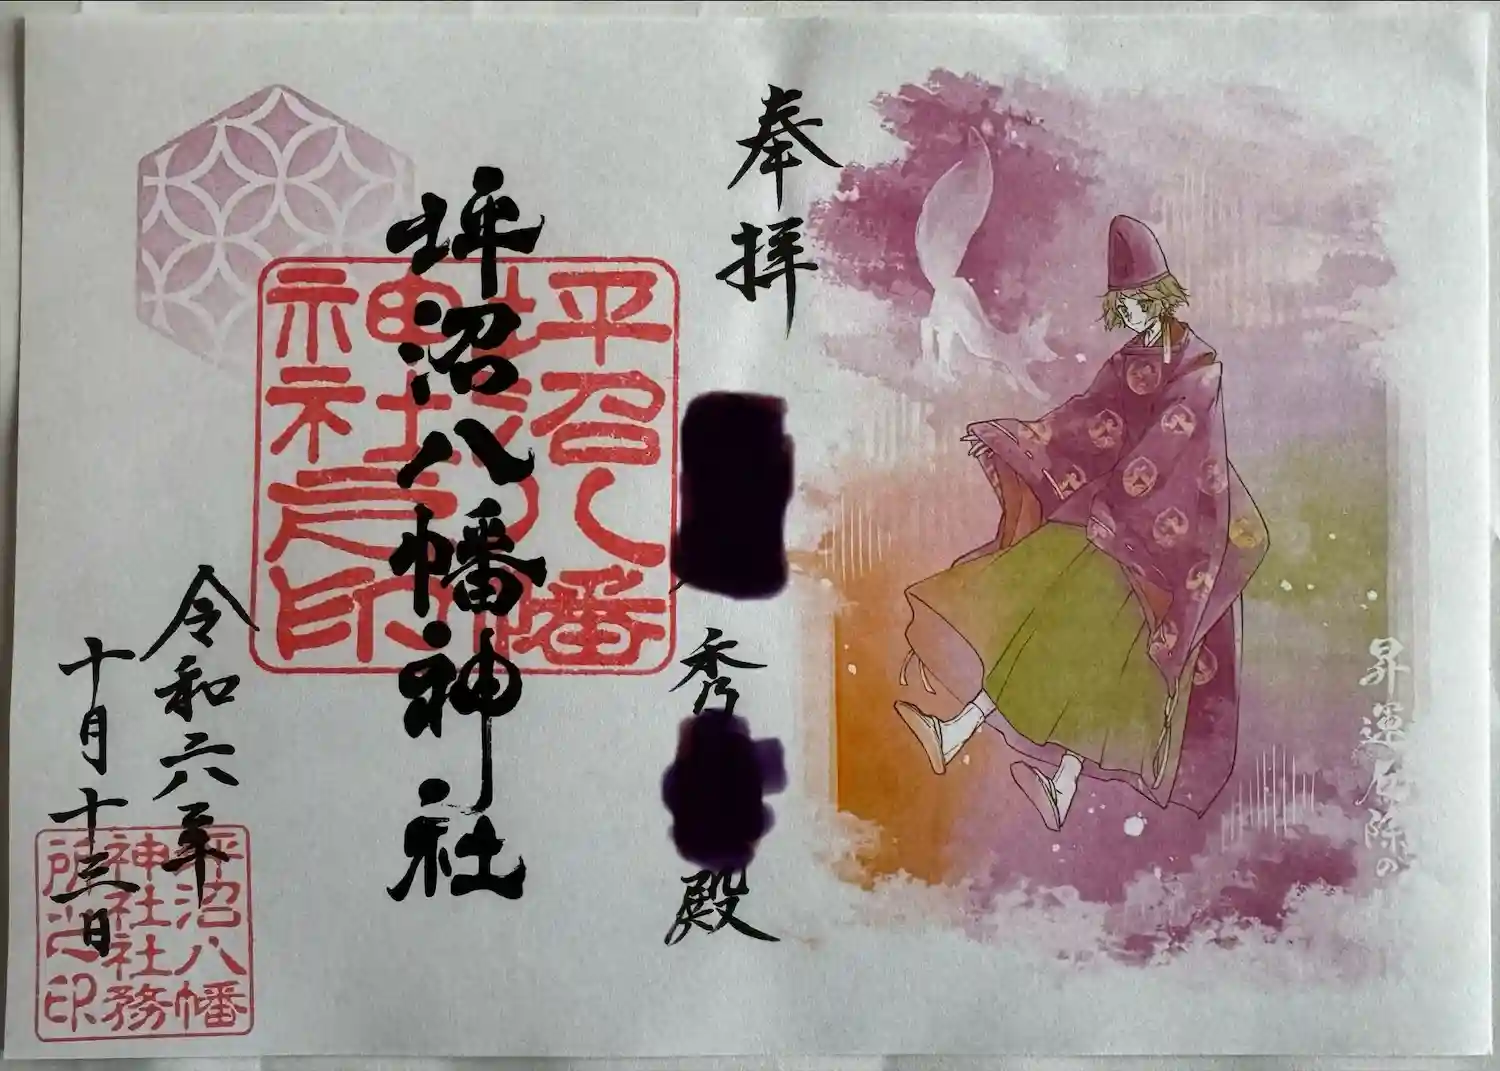 昇運厄除の
奉拝
秀
殿
坪沼八幡神社
坪沼八幡
神社之印
令和六年
十月十三日
坪沼八幡
神社社務
所之印